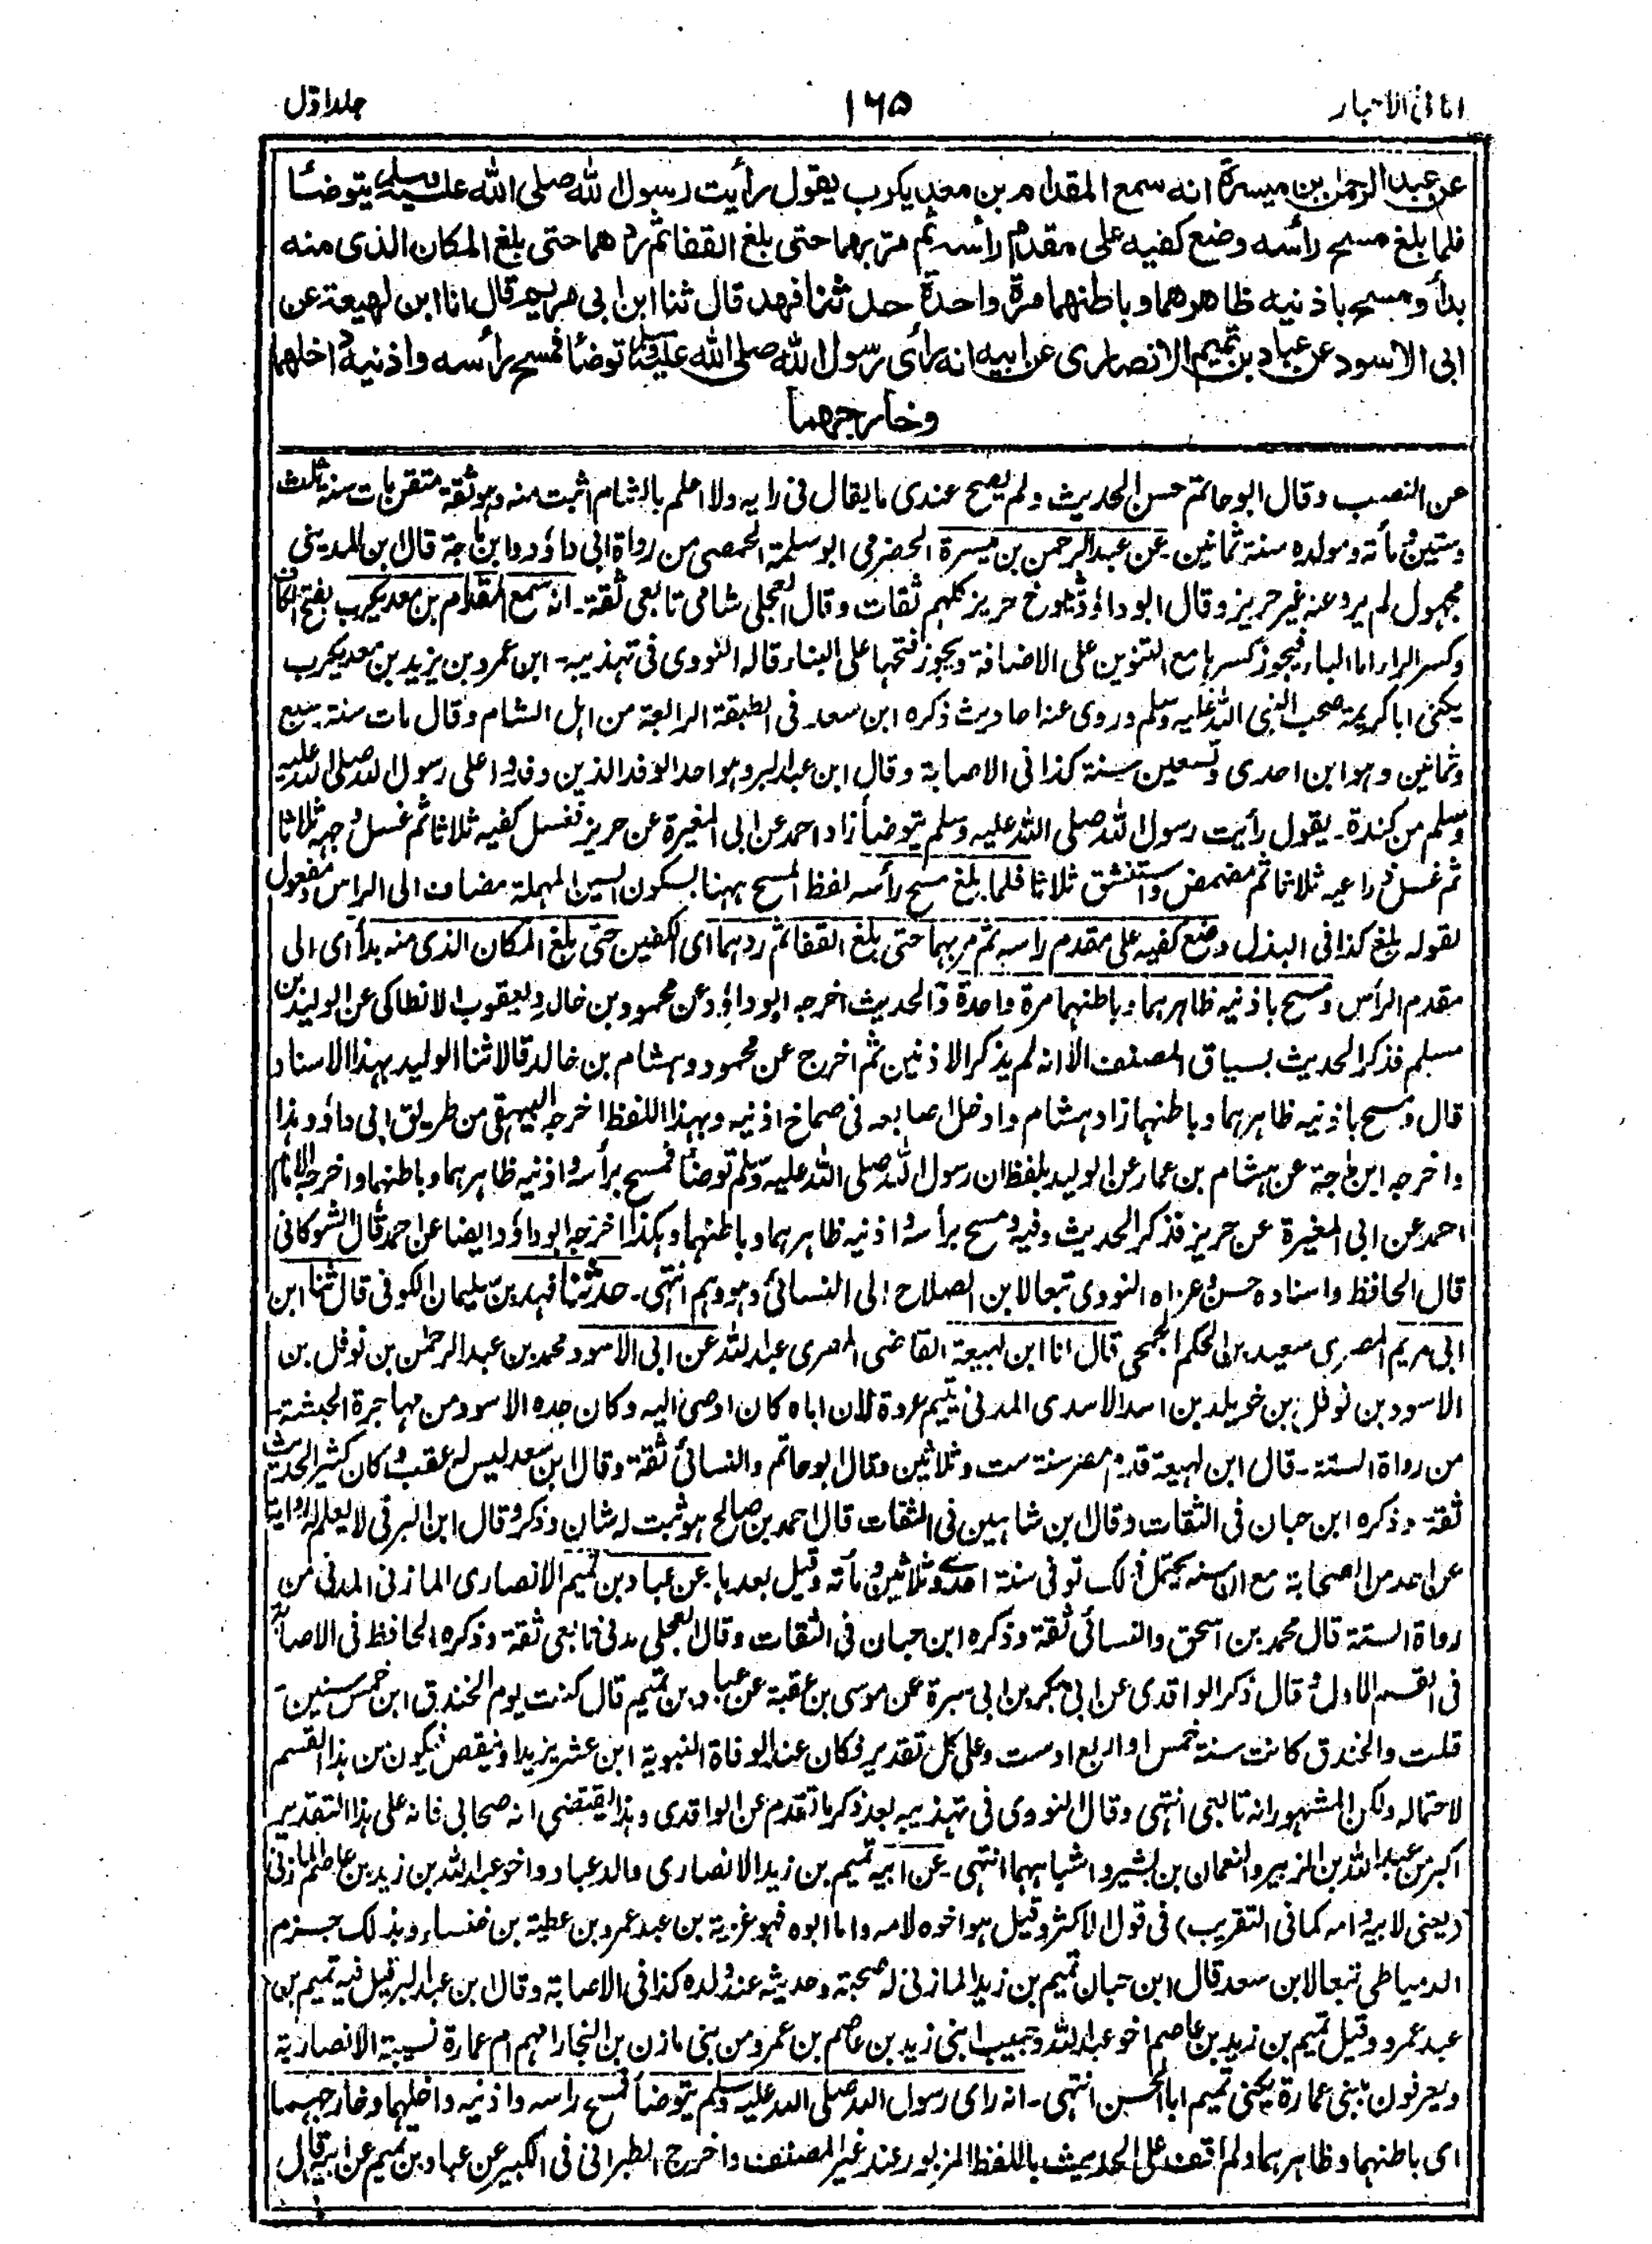 امانی الاحبار ۱۶۵ جلد اول
عن عبد الرحمٰن بن ميسرة انه سمع المقدام بن معد يكرب يقول رأيت رسول الله صلى الله عليه وسلم يتوضأ
فلما بلغ مسح رأسه وضع كفيه على مقدم رأسه ثم مر بهما حتى بلغ القفا ثم ردهما حتى بلغ المكان الذى منه
بدأ ومسح باذنيه ظاهرهما وباطنهما مرة واحدة حدثنا فهد قال ثنا ابن ابى مريم قال انا ابن لهيعة عن
ابى الاسود عن عباد بن تميم الانصارى عن ابيه انه رأى رسول الله صلى الله عليه وسلم توضأ فمسح برأسه واذنيه داخلهما
وخارجهما
عن النصب وقال ابو حاتم حسن الحديث ولم يصح عندى ما يقال فى رايه ولا اعلم بالشام اثبت منه وهو ثقة متقن مات سنة ثلث
وستين ومأته ومولده سنة ثمانين۔ عن عبد الرحمن بن ميسرة الحضرمى ابو سلمة الحمصى من رواة ابى داؤد وابن ماجة قال ابن المدينى
مجهول لم يرو عنه غير حريز وقال ابو داؤد شيوخ حريز كلهم ثقات وقال العجلى شامى تابعى ثقة۔ انه سمع المقدام بن معد يكرب بفتح الكاف
وكسر الراء اما الباء فيجوز كسرها مع التنوين على الاضافة ويجوز فتحها على البناء قاله النووى فى تهذيبه۔ ابن عمرو بن يزيد بن معد يكرب
يكنى ابا كريمة صحب النبى الله عليه وسلم وروى عنه احاديث ذكره ابن سعد فى الطبقة الرابعة من اهل الشام وقال مات سنة سبع
وثمانين وهو ابن احدى وتسعين سنة كذا فى الاصابة وقال ابن عبد البر وهو احد الوفد الذين وفدوا على رسول الله صلى الله عليه
وسلم من كندة۔ يقول رأيت رسول الله صلى الله عليه وسلم يتوضأ زاد احمد عن ابى المغيرة عن حريز فغسل كفيه ثلاثا ثم غسل وجهه ثلاثا
ثم غسل ذراعيه ثلاثا ثم مضمض واستنشق ثلاثا فلما بلغ مسح رأسه لفظ المسح ههنا بسكون السين المهملة مضاف الى الراس ومفعول
لقوله بلغ كذا فى البذل وضع كفيه على مقدم راسه ثم مر بهما حتى بلغ القفا ثم ردهما اى الكفين حتى بلغ المكان الذى منه بدأ اى الى
مقدم الرأس ومسح باذنيه ظاهرهما وباطنهما مرة واحدة والحديث اخرجه ابو داؤد عن محمود بن خالد ويعقوب الانطاكى عن الوليد بن
مسلم فذكر الحديث بسياق المصنف الا انه لم يذكر الاذنين ثم اخرج عن محمود وهشام بن خالد قالا ثنا الوليد بهذا الاسناد
قال ومسح باذنيه ظاهرهما وباطنهما زاد هشام وادخل اصابعه فى صماخ اذنيه وبهذا اللفظ اخرجه البيهقى من طريق ابى داؤد وهذا
واخرجه ابن ماجة عن هشام بن عمار عن الوليد بلفظ ان رسول الله صلى الله عليه وسلم توضأ فمسح برأسه واذنيه ظاهرهما وباطنهما واخرجه الامام
احمد عن ابى المغيرة عن حريز فذكر الحديث وفيه ومسح برأسه واذنيه ظاهرهما وباطنهما وهكذا اخرجه ابو داؤد ايضا عن احمد قال الشوكانى
قال الحافظ واسناده حسن وعزاه النووى تبعا لابن الصلاح الى النسائى وهو وهم انتهى۔ حدثنا فهد بن سليمان الكوفى قال ثنا ابن
ابى مريم المصرى سعيد بن الحكم الجمحى قال انا ابن لهيعة القاضى المصرى عبد الله عن ابى الاسود محمد بن عبد الرحمٰن بن نوفل بن
الاسود بن نوفل بن خويلد بن اسد الاسدى المدنى يتيم عروة لان اباه كان اوصى اليه وكان جده الاسود من مهاجرة الحبشة۔
من رواة الستة۔ قال ابن لهيعة قدم مصر سنة ست وثلاثين وقال ابو حاتم والنسائى ثقة وقال ابن سعد ليس له عقب وكان كثير الحديث
ثقة وذكره ابن حبان فى الثقات وقال ابن شاهين فى الثقات قال احمد بن صالح هو ثبت له شان وذكر وقال ابن البرقى لا يعلم له رواية
عن احد من الصحابة مع ان سنه يحتمل ذلك توفى سنة احدى وثلاثين ومأته وقيل بعدها۔ عن عباد بن تميم الانصارى المازنى المدنى من
رواة الستة قال محمد بن اسحق والنسائى ثقة وذكره ابن حبان فى الثقات وقال العجلى مدنى تابعى ثقة وذكره الحافظ فى الاصابة
فى القسم الاول وقال ذكر الواقدى عن ابى بكر بن ابى سبرة عن موسى بن عقبة عن عباد بن تميم قال كنت يوم الخندق ابن خمس سنين۔
قلت والخندق كانت سنة خمس او اربع او ست وعلى كل تقدير فكان عند الوفاة النبوية ابن عشر يزيد او ينقص فيكون من هذا القسم
لاحتماله ولكن المشهور انه تابعى انتهى وقال النووى فى تهذيبه بعد ذكر ما تقدم عن الواقدى وهذا يقتضى انه صحابى فانه على هذا التقدير
اكبر من عبد الله بن الزبير والنعمان بن بشير واشباههما انتهى۔ عن ابيه تميم بن زيد الانصارى والد عباد واخو عبد الله بن زيد بن عاصم المازنى
(يعنى لابيه وامه كما فى التقريب) فى قول الاكثر وقيل هو اخوه لامه واما ابوه فهو غزية بن عبد عمرو بن عطية بن خنساء وبذلك جزم
الدمياطى تبعا لابن سعد قال ابن حبان تميم بن زيد المازنى له صحبة وحديثه عند ولده كذا فى الاصابة وقال ابن عبد البر قيل فيه تميم بن
عبد عمرو وقيل تميم بن زيد بن عاصم اخو عبد الله وحبيب ابنى زيد بن عاصم بن عمرو من بنى مازن بن النجار امهم ام عمارة نسيبة الانصارية
ويعرفون ببنى عمارة يكنى تميم ابا الحسن انتهى۔ انه راى رسول الله صلى الله عليه وسلم يتوضأ فمسح راسه واذنيه داخلهما وخارجهما
اى باطنهما وظاهرهما ولم اقف على الحديث باللفظ المزبور عند غير المصنف واخرج الطبرانى فى الكبير عن عباد بن تميم عن ابيه قال